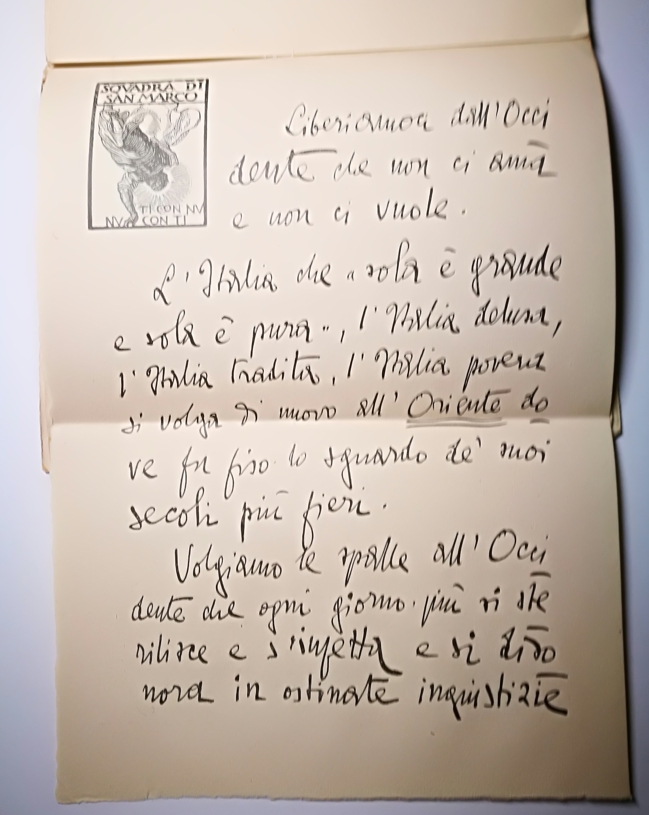 SQVADRA DI
SAN MARCO
TI CON NV
NV CON TI
Liberiamoci dall'Occi
dente che non ci ama
e non ci vuole.
L'Italia che "sola è grande
e sola è pura", l'Italia delusa,
l'Italia tradita, l'Italia povera
si volga di nuovo all'Oriente do
ve fu fiso lo sguardo de' suoi
secoli più fieri.
Volgiamo le spalle all'Occi
dente che ogni giorno più si ste
rilisce e s'infetta e si diso
nora in ostinate inquistizie